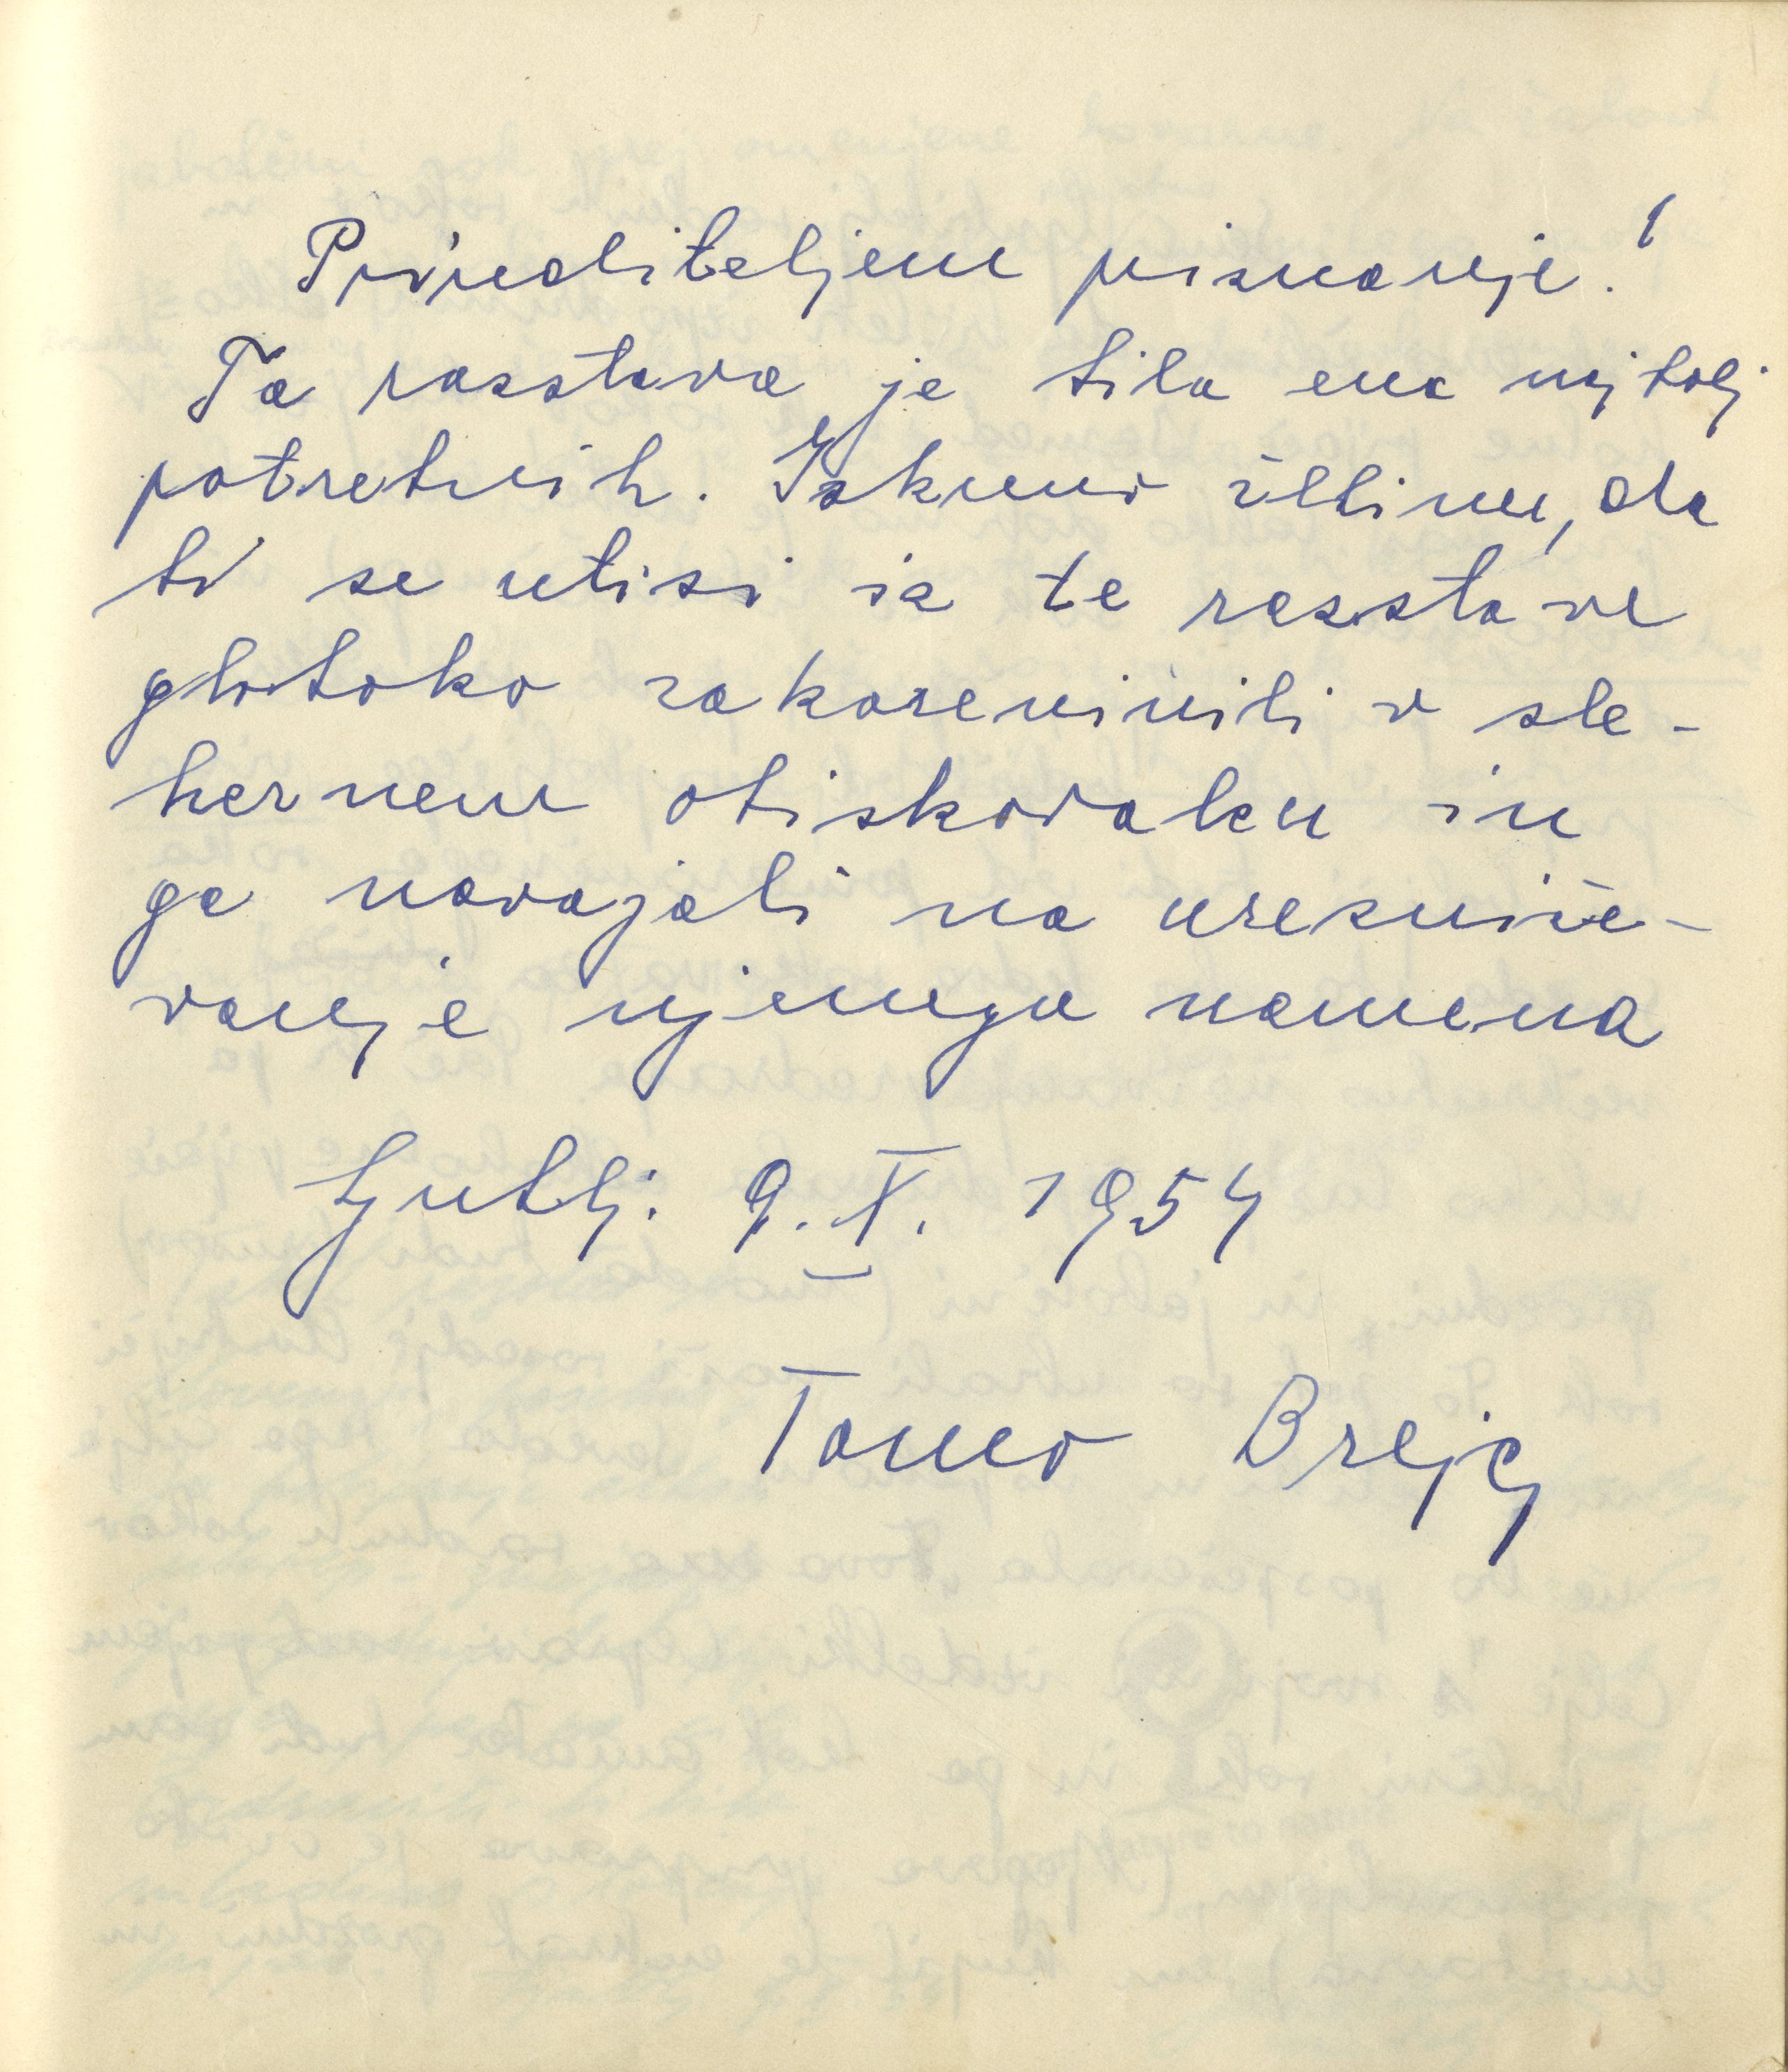 Prirediteljem priznanje!
Ta razstava je bila ena najbolj
potrebnih. Iskreno želimo, da
bi se utisi iz te razstave
globoko zakoreninili v sle-
hernem obiskovalcu in
ga navajali na uresniče-
vanje njenega namena
Ljublj: 9. X. 1954
Tomo Brejc